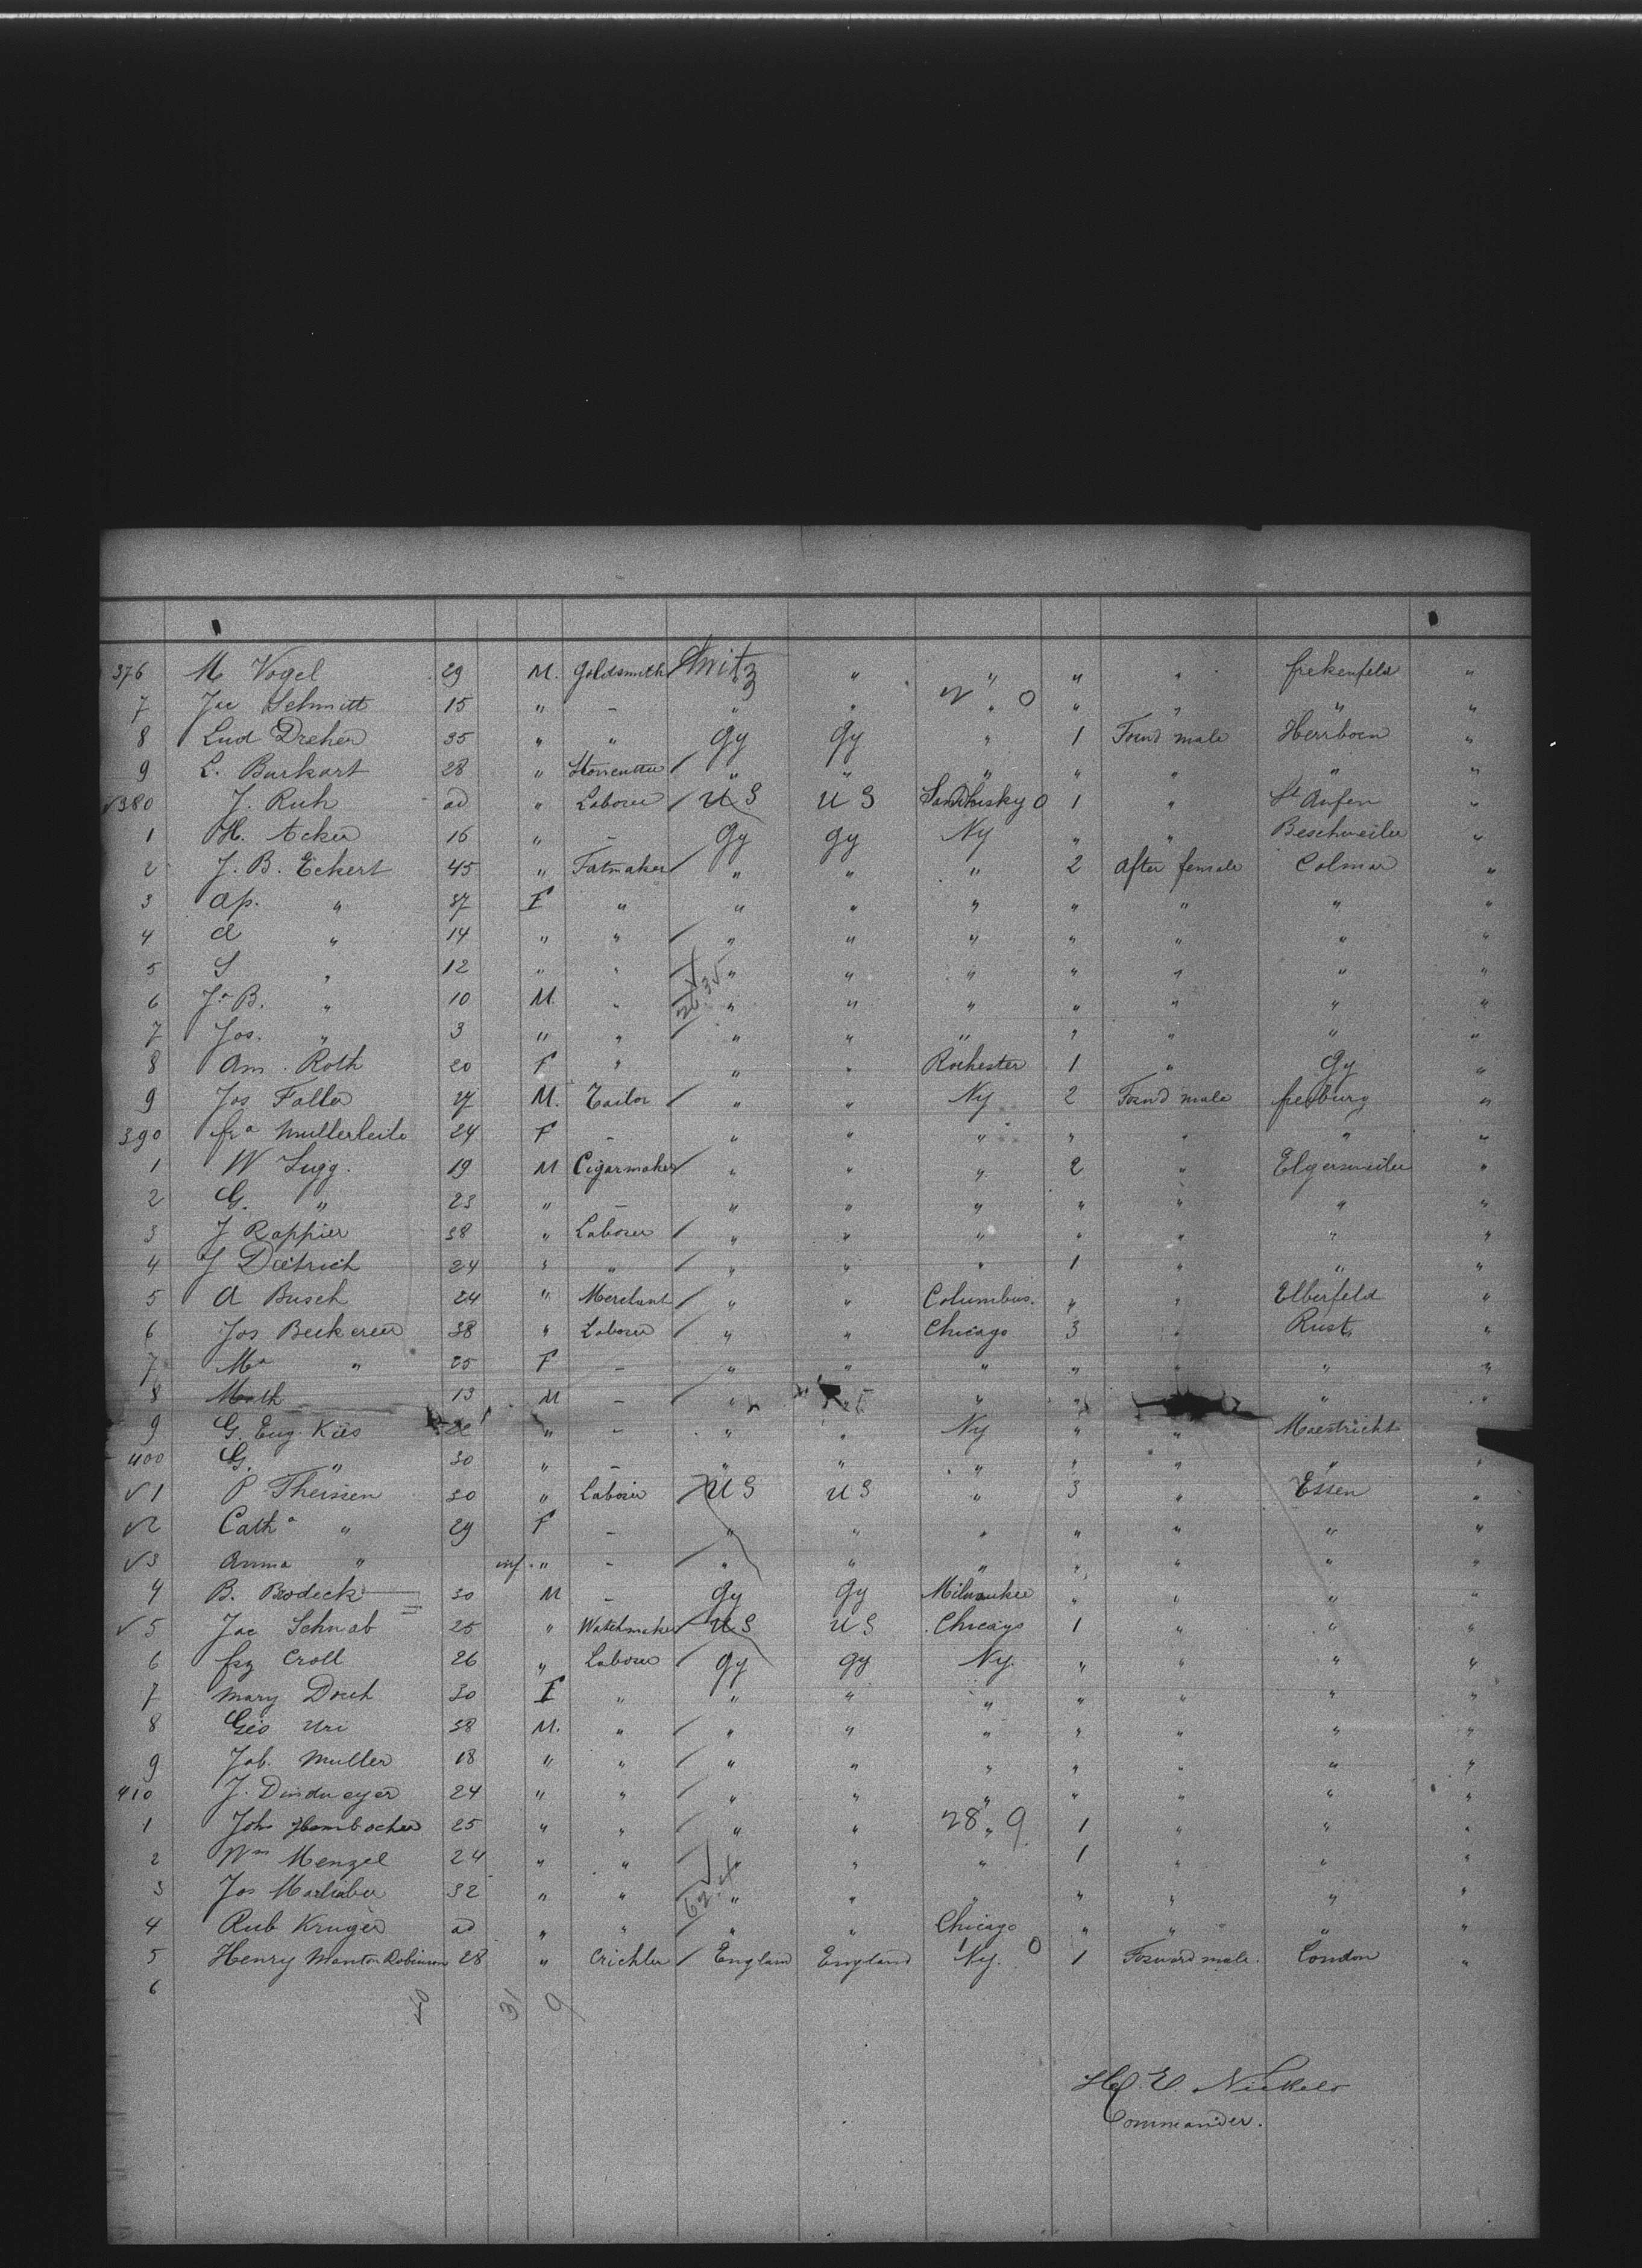 376 M Vogel 29 M. Goldsmith " " " " frekenfeld "
7 Jac Schmitt 15 " - " " " " " " "
8 Lud Dreher 35 " " Gy Gy " 1 male "
9 L. Burkart 28 " " " " " " " "
380 J. Ruh ad " Laborer U S U S 1 " "
1 H. Acker 16 " - Gy Gy Ny " " "
2 J. B. Eckert 45 " " " " 2 after female Colmar "
3 Ap. " 37 F " " " " " " " "
4 A " 14 " " " " " " " " "
5 S " 12 " " " " " " " " "
6 J. B. " 10 M. " " " " " " " "
7 Jos. " 3 " " " " " " " " "
8 Am. Roth 20 F " " " Rochester 1 " Gy "
9 Jos Faller M. Tailor " " Ny 2 male freiburg "
390 24 F - " " " " " " "
1 W Lugg. 19 M Cigarmaker " " " 2 " "
2 G. " 23 " - " " " " " " "
3 J Rappier 38 " Laborer " " " " " " "
4 J Dietrich 24 " " " " " 1 " " "
5 A Busch 24 " Merchant " " Columbus. " " Elberfeld "
6 Jos 38 " Laborer " " Chicago 3 " Rust "
7 Ma " 25 F - " " " " " " "
8 Math 13 M - " " " " "
9 G. Eug. Kies " - " " Ny " " Maestricht
400 G. " 30 " - " " " " " " "
1 P Theissen 30 " Laborer U S U S " 3 " Essen "
2 Cath a " 29 F - " " " " " " "
3 Anna " inf. " - " " " " " " "
4 B. Brodeck 30 M - Gy Gy Milwaukee " " " "
5 Jac Schnab 25 " Watchmaker U S U S Chicago 1 " " "
6 Croll 26 " Laborer Gy Gy Ny. " " " "
7 Mary Douh 30 F " " " " " " " "
8 Geo Uri 38 M. " " " " " " " "
9 Jab. Muller 18 " " " " " " " " "
410 J. 24 " " " " " " " " "
1 Joh. Hambacher 25 " " " " 28 " 9 1 " " "
2 Wm Menzel 24 " " " " " 1 " " "
3 Jos 32 " " " " " " " " "
4 Rub Kruger ad " " " " Chicago " " " "
5 Henry Manton Robinson 28 " England England Ny. 0 1 Forward male. London "
6
40 31 9
Nickels
Commander.